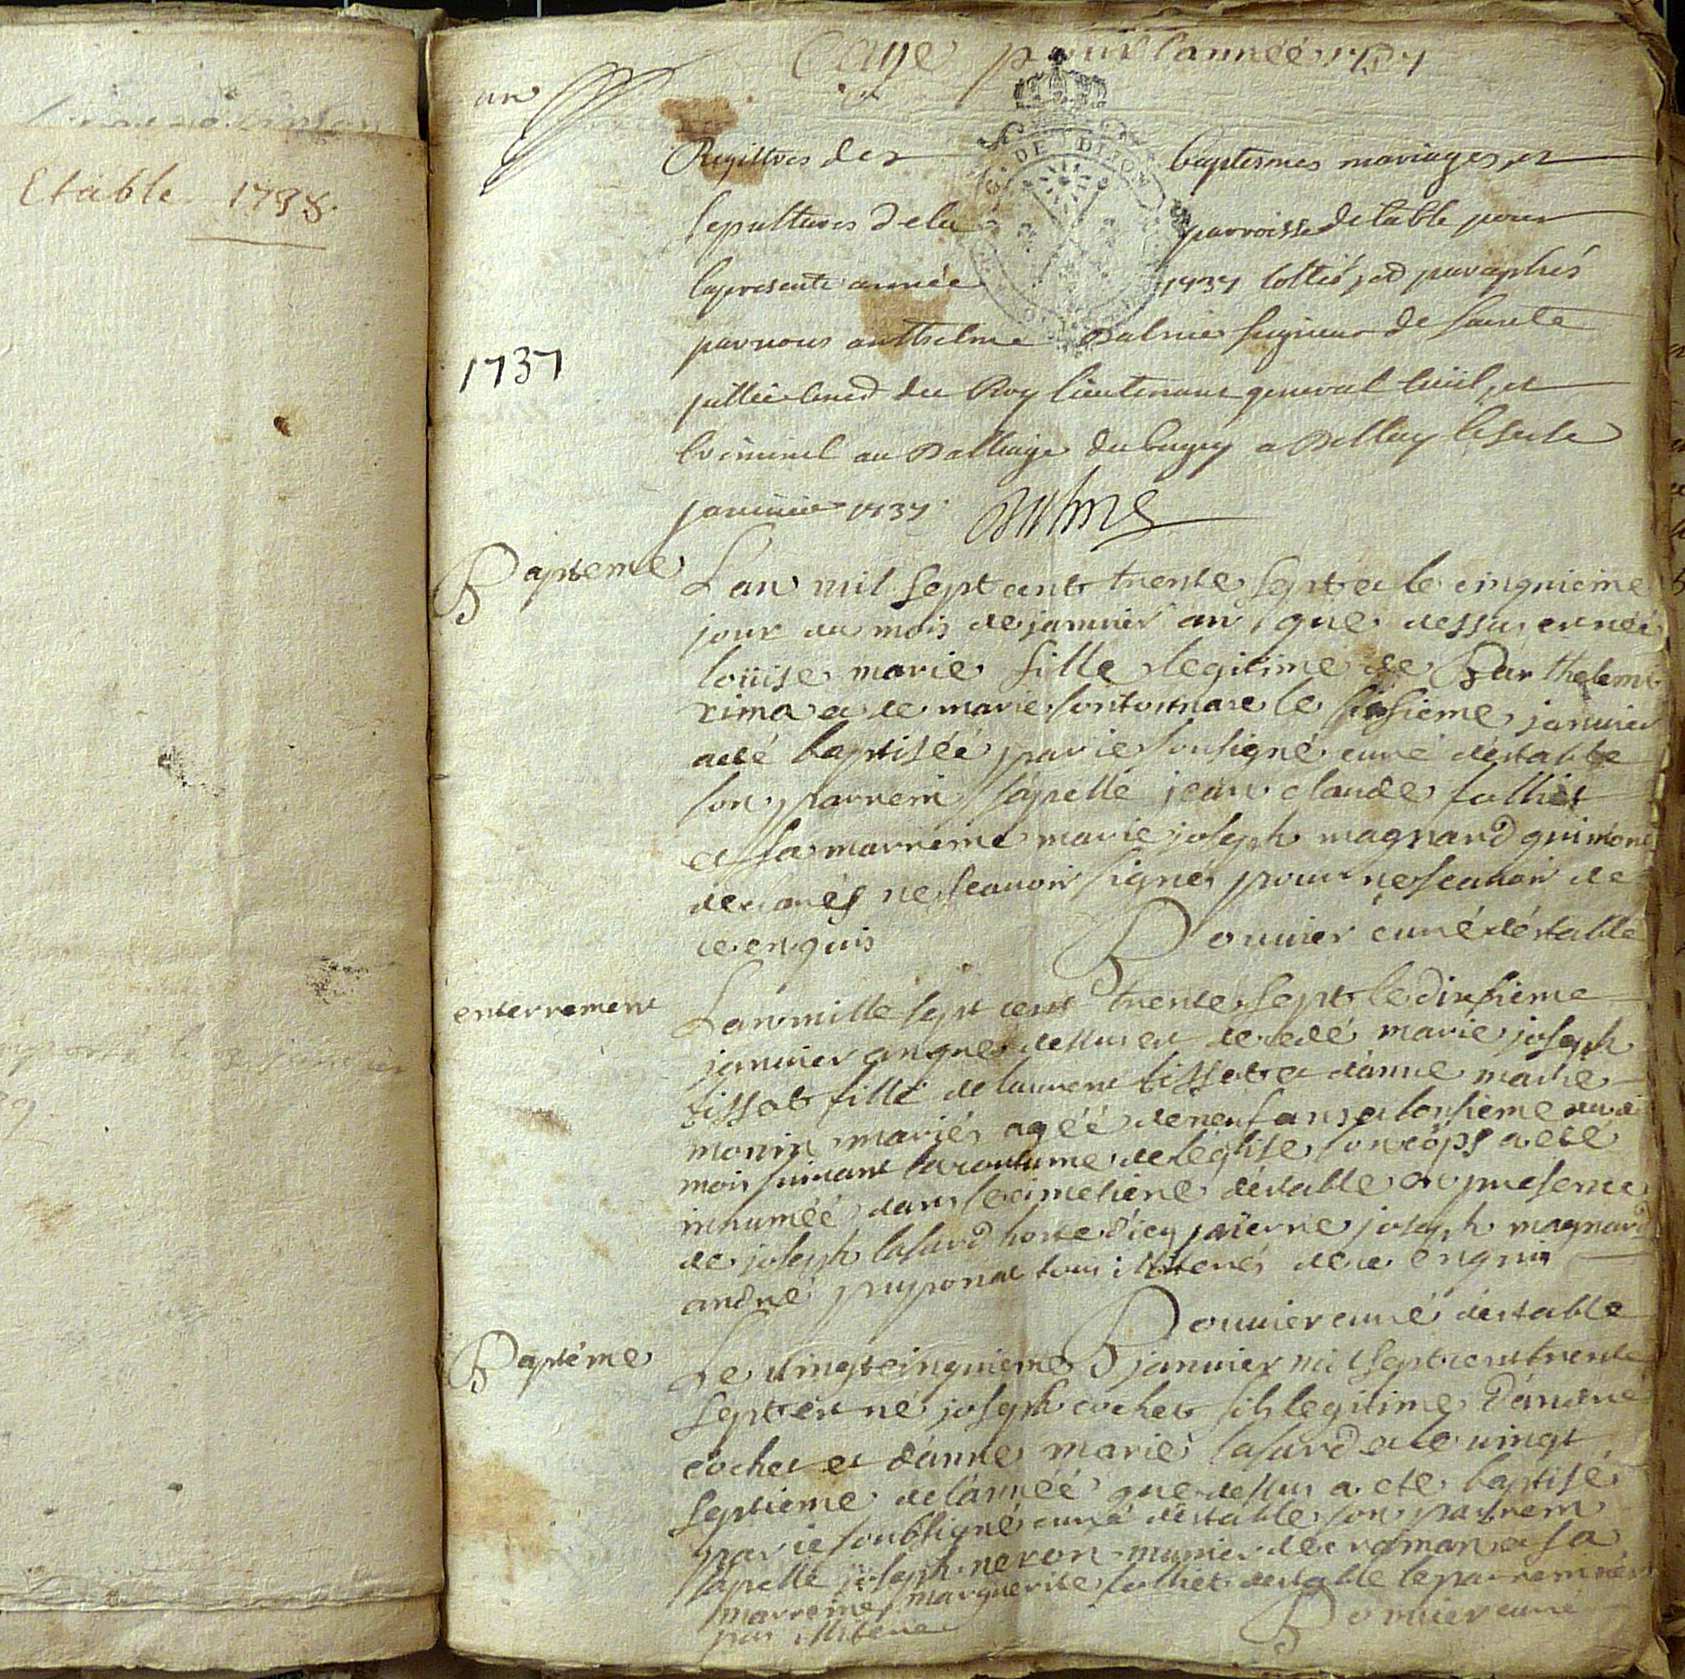 Etable 1738
pour l'année 1737
un
Registres des baptesmes mariages et
sepultures de la parroisse detable pour
la presente année 1737 cottés et paraphés
par nous anthelme Balme seigneur de sainte
du Roy lieutenant general civil et
criminel au Balliage du bugey a Bellay le
janvier 1737 Balme
1737
DE DIJON
Bapteme
Lan mil sept cent trente sept et le cinquieme
jour du mois de janvier an que dessu est née
loüise marie fille legitime de Barthelemi
rima et de marie le sisieme janvier
a eté baptiséé par ie sousigné curé déstable
son parrein sápelle jean claude
et sa marreine marie joseph magnard qui mont
declarés ne scauoir signé pour ne scauoir de
ce enquis Bouuier curé déstable
enterrement
Lan mille sept cent trente sept le dixsieme
janvier an que dessus est decedé marie joseph
tissot fille de laurent tissot et dánne marie
monin mariés agéé de neuf ans et lonsieme du di
mois suivant la coutume de léglise son cöps a eté
inhuméé dans le cimetiere déstable en presence
de joseph lasard hoste dicy pierre joseph magnard
andré tous illiterés de ce enquis
Bouuier curé déstable
Baptéme
Le vingt cinquieme janvier mil sept cent trente
sept est né joseph cochet fils legitime dándré
cochet et dánne marie lasard et le vingt
septieme de lánnéé que dessus a eté baptisé
par ie soubsigné curé déstable son parrein
sápelle joseph neron munier de croman et sa
marreine marguerite destable le parrein
pas illiteré Bouuier curé